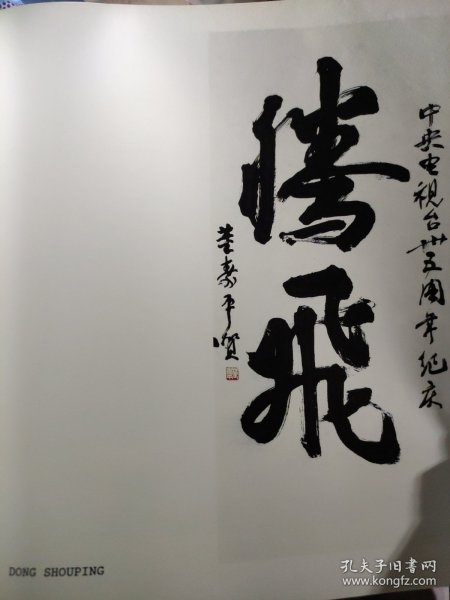 中央电视台卅五周年纪庆
腾飞
董寿平贺
DONG SHOUPING
孔夫子旧书网
www.kongfz.com